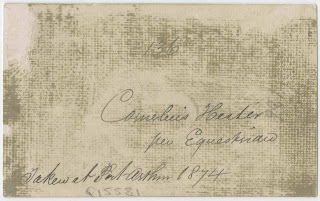 136
Cornelius Hester
per Equestrian
Taken at Port Arthur 1874
P15581